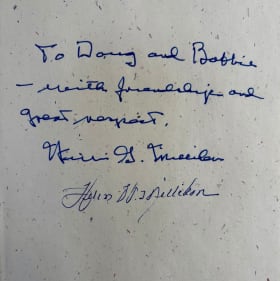 To Doug and Bobbie
— with friendship and
great respect.
G.
Helen Millikan